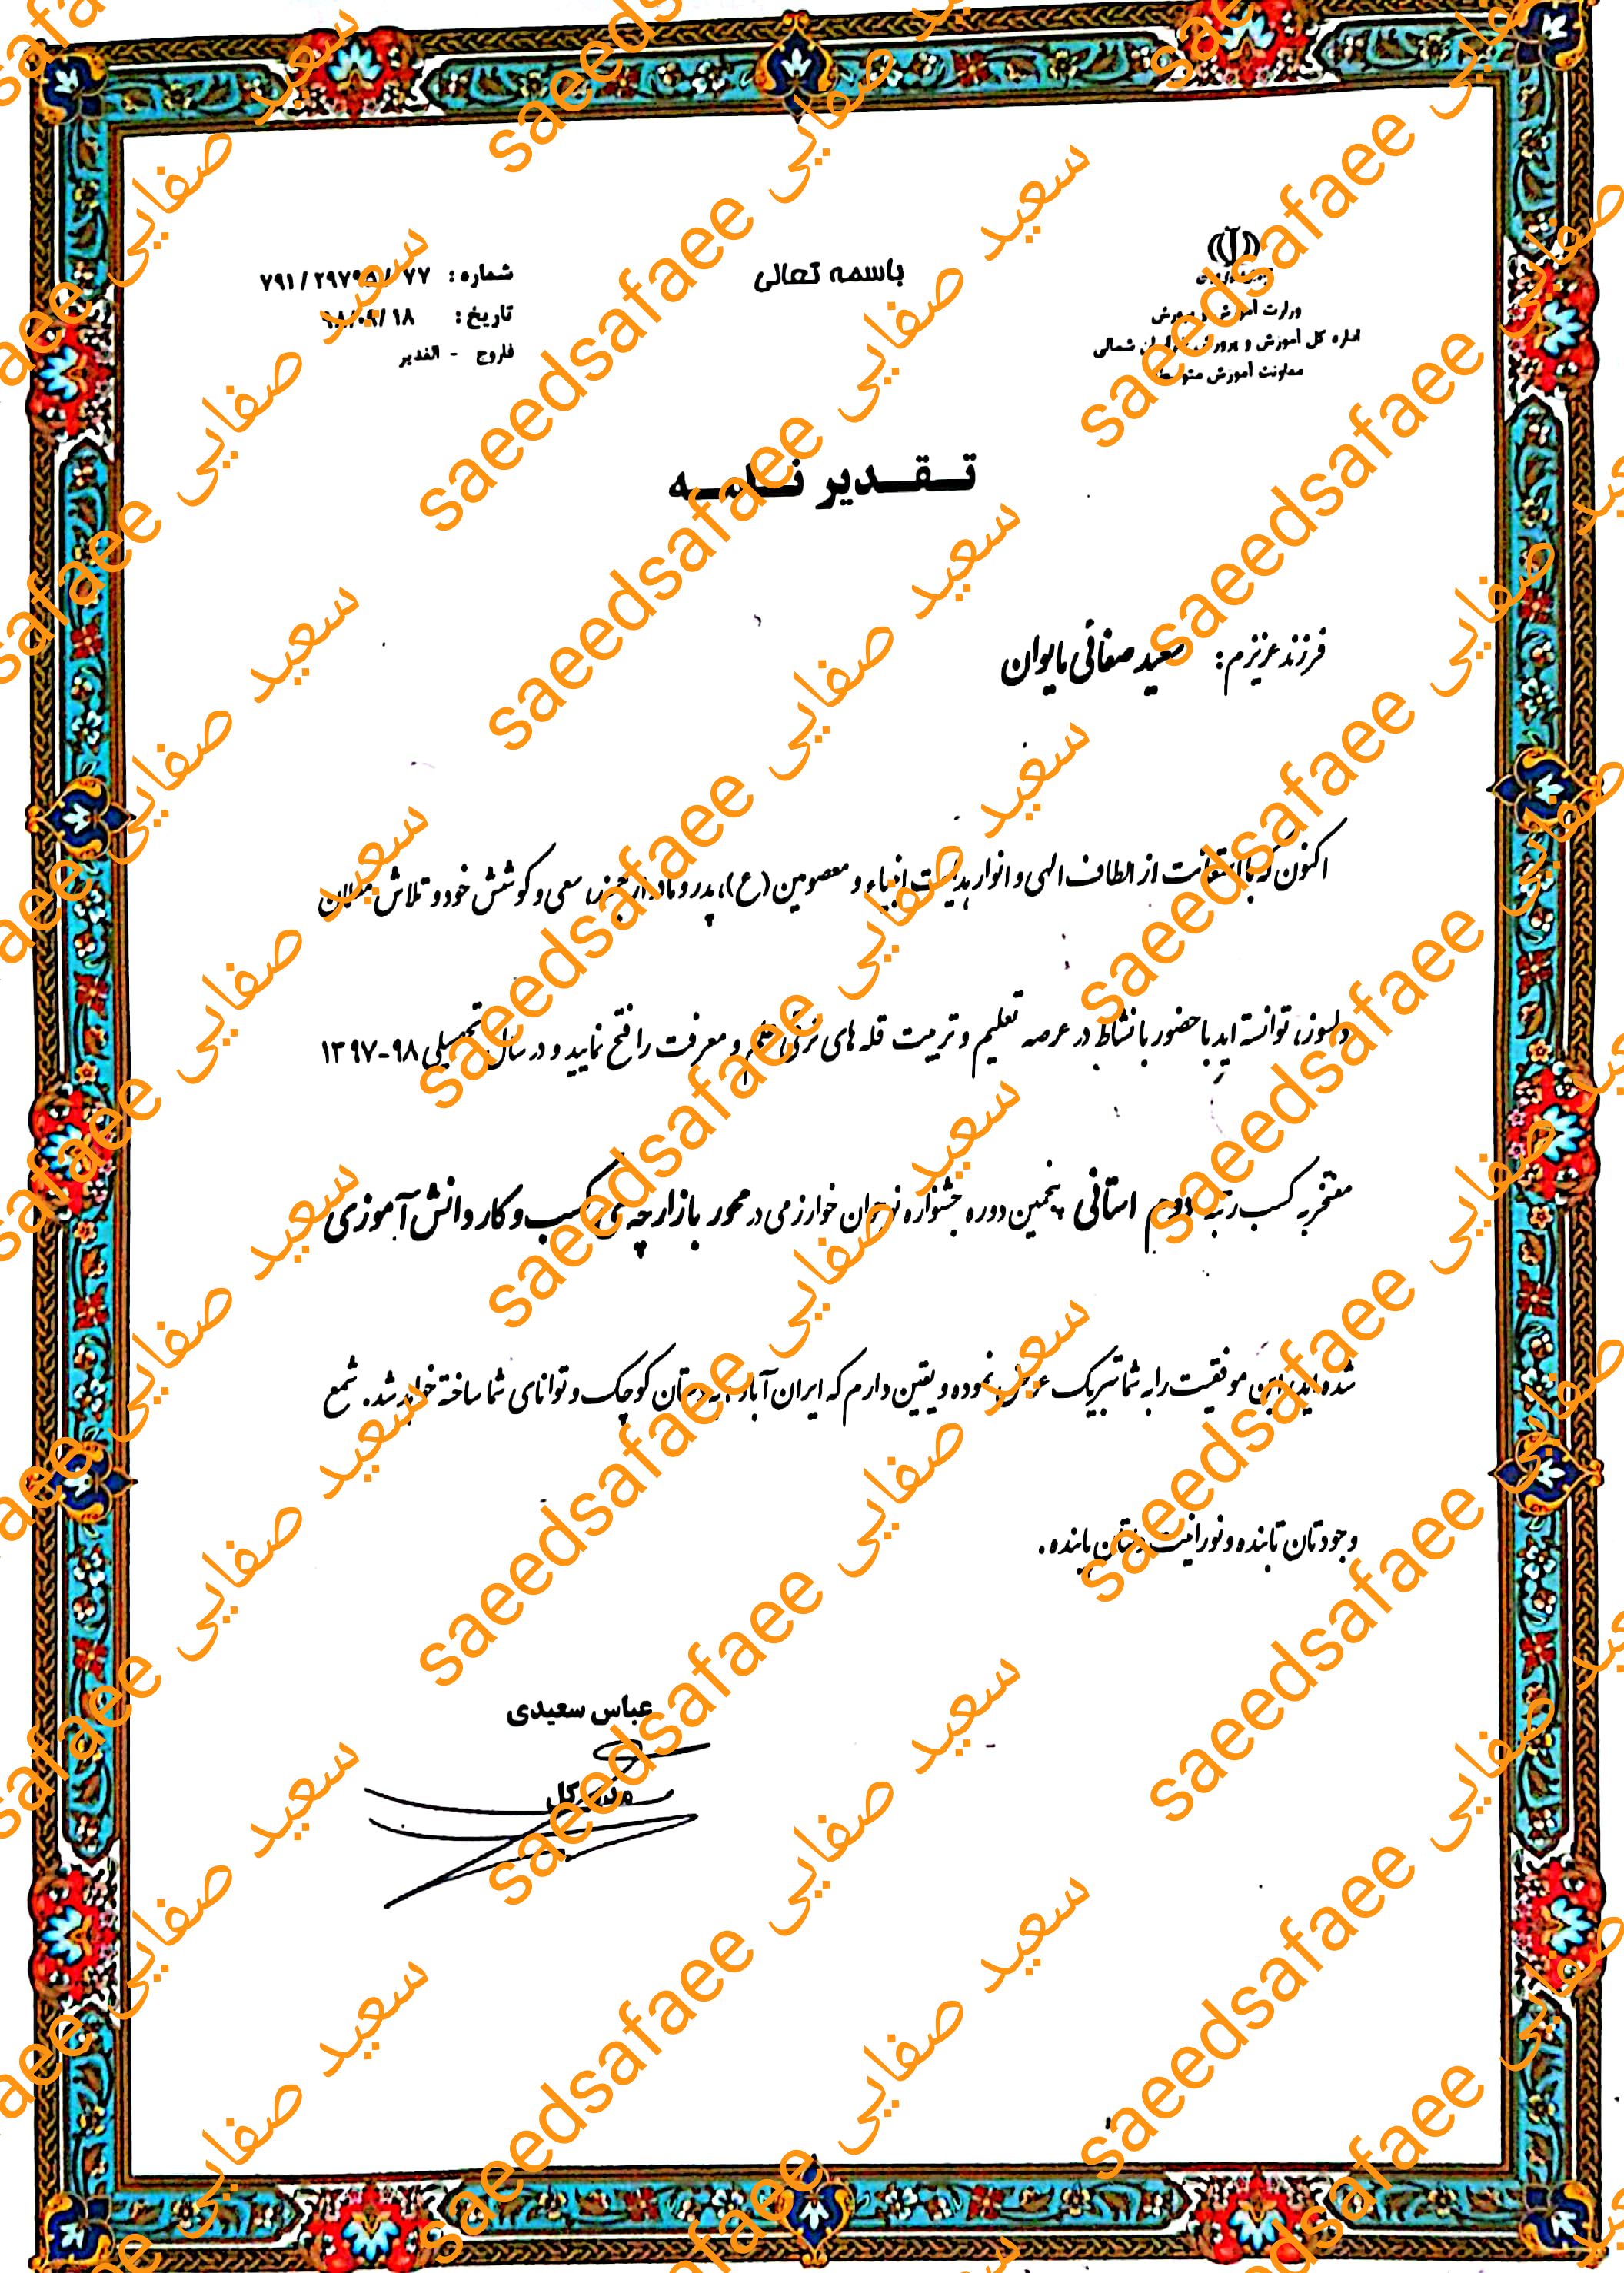 باسمه تعالی
وزارت آموزش و پرورش
اداره کل آموزش و پرورش خراسان شمالی
معاونت آموزش متوسطه
شماره: ۷۹۱/
تاریخ: ۱۸/
فاروج - الغدیر
تقدیر نامه
فرزند عزیزم: سعید صفائی مایوان
اکنون که با استعانت از الطاف الهی و انوار هدایت انبیاء و معصومین (ع)، پدر و مادر ارجمند، سعی و کوشش خود و تلاش معلمان
دلسوز، توانسته اید با حضور با نشاط در عرصه تعلیم و تربیت قله های ترقی علم و معرفت را فتح نمایید و در سال تحصیلی ۹۸-۱۳۹۷
مفتخر به کسب رتبه دوم استانی پنجمین دوره جشنواره نوجوان خوارزمی در محور بازارچه ی کسب و کار دانش آموزی
شده اید، این موفقیت را به شما تبریک عرض نموده و یقین دارم که ایران آباد به دستان کوچک و توانای شما ساخته خواهد شد. شمع
وجودتان تابنده و نورانیت دلتان پاینده.
عباس سعیدی
مدیر کل
سعید صفایی saeedsafaee